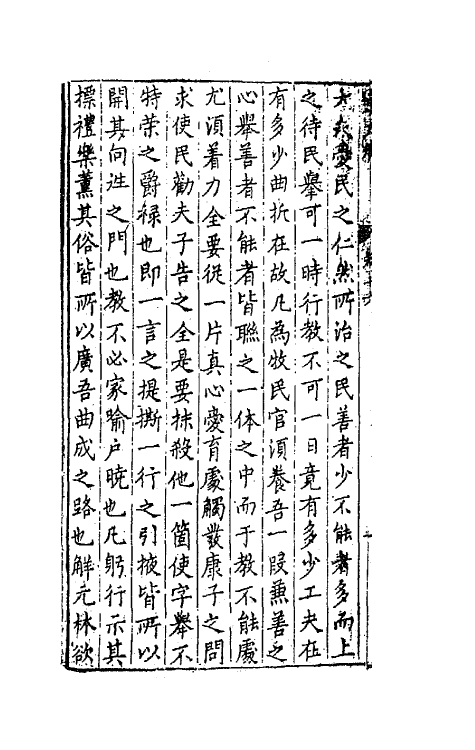 夫愛民之仁然所治之民善者少不能者多而上
之待民舉可一時行教不可一日竟有多少工夫在
有多少曲折在故凡為牧民官須養吾一段兼善之
心舉善者不能者皆聯之一体之中而于教不能處
尤須着力全要從一片真心愛育處觸發康子之問
求使民勸夫子告之全是要抹殺他一箇使字舉不
特荣之爵祿也即一言之提撕一行之引掖皆所以
開其向往之門也教不必家喻户曉也凡躬行示其
摽禮樂薰其俗皆所以廣吾曲成之路也解元林欲